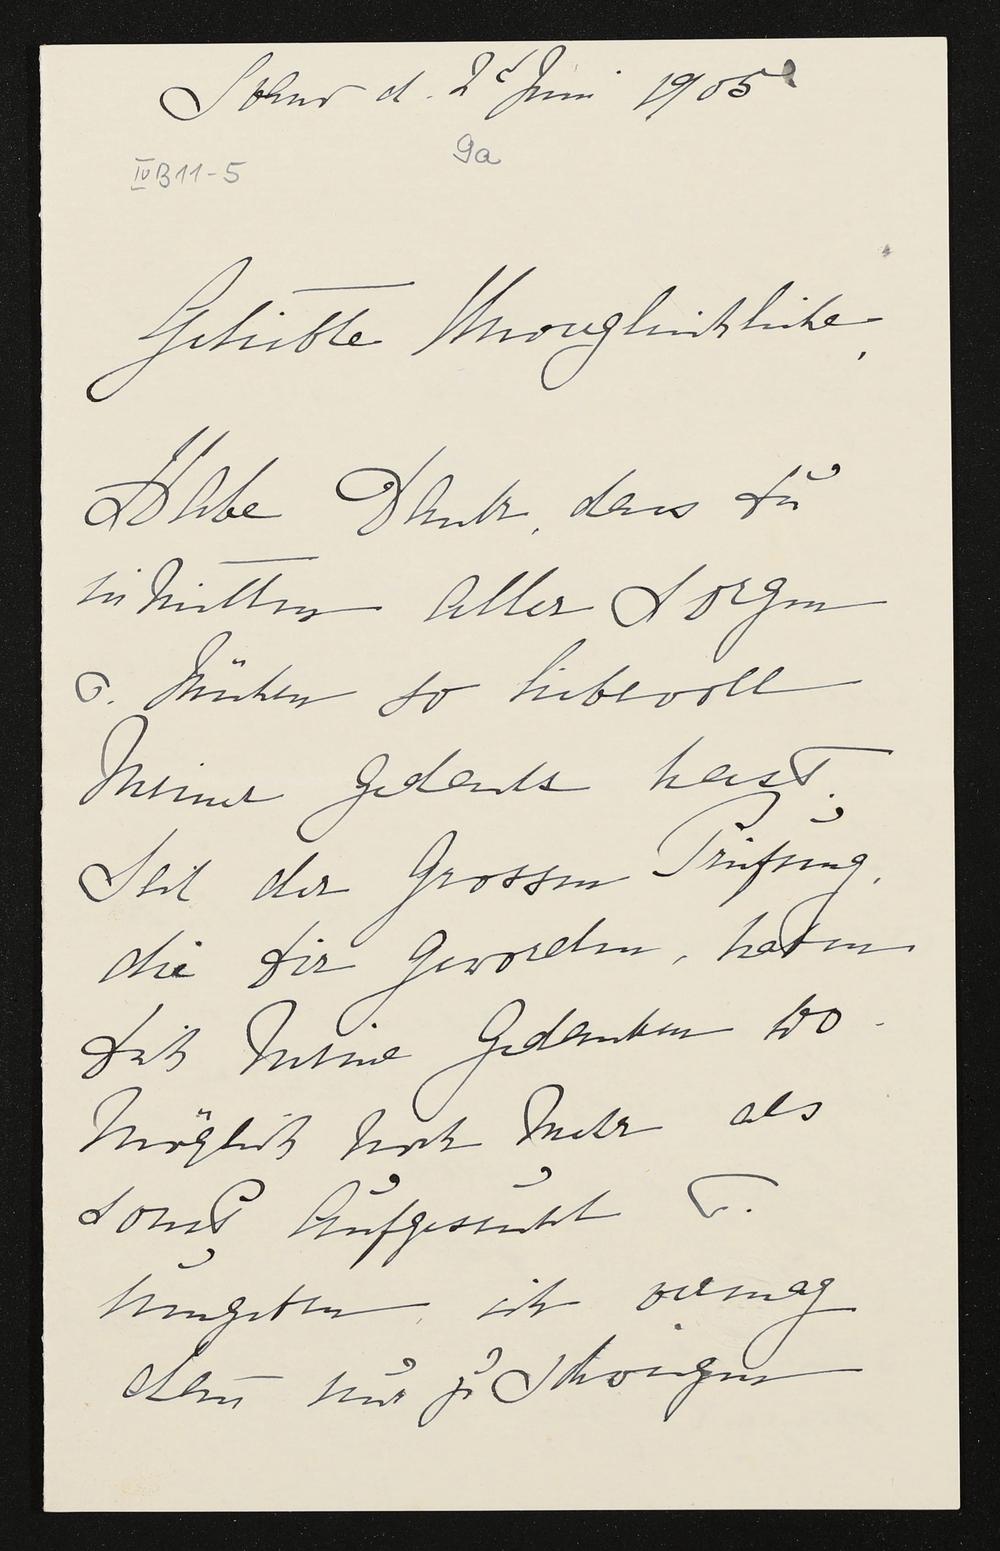 d. 2t Juni 1905
IVB11-5
9a
Geliebte Unvergleichliche,
Habe Dank, dass Du
in Mitten aller Sorgen
u. Mühen so liebevoll
Meiner gedenkst hast.
Seit der Grossen Prüfung,
die Dir geworden, haben
Dich Meine Gedanken wo-
Möglich Noch Mehr als
sonst Aufgesucht u.
Umgeben, ich vermag
dann nur zu Schweigen